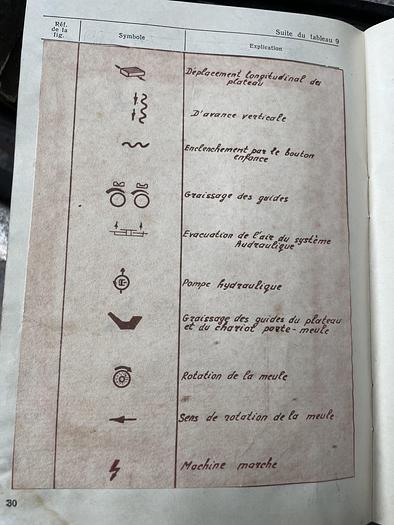 Suite du tableau 9
Réf.
de la
fig.
Symbole
Explication
Déplacement longitudinal des
plateau
D'avance verticale
Enclenchement par le bouton
enfonce
Graissage des guides
Evacuation de l'air du système
hudraulique
Pompe hydraulique
Graissage des guides du plateau
et du chariot porte-meule
Rotation de la meule
Sens de rotation de la meule
Machine marche
30